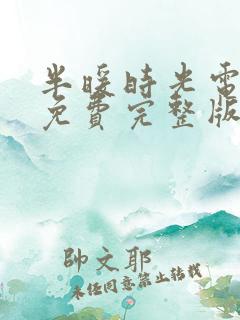 半暖時光電
免費完整版
帥文耶
未经同意禁止转载